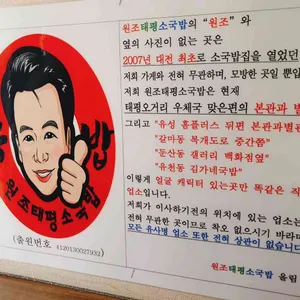 원조태평소국밥의 "원조" 와
옆의 사진이 없는 곳은
2007년 대전 최초로 소국밥집을 열었던
저희 가게와 전혀 무관하며, 모방한 곳일 뿐입
저희 원조태평소국밥은 현재
태평오거리 우체국 맞은편의 본관과 별
그리고 "유성 홈플러스 뒤편 본관과별관
"갈마동 목개도로 중간쯤"
"둔산동 갤러리 백화점옆"
"유천동 김가네국밥"
이렇게 얼굴 캐릭터 있는곳만 똑같은 직
업소입니다.
저희가 이사하기전의 위치에 있는 업소는
전혀 무관한 곳이므로 착오 없으시기 바라며
모든 유사명 업소 또한 전혀 상관이 없습니다
원조태평소국밥 올림
밥
원조태평소국밥
(출원번호 4120130027932)